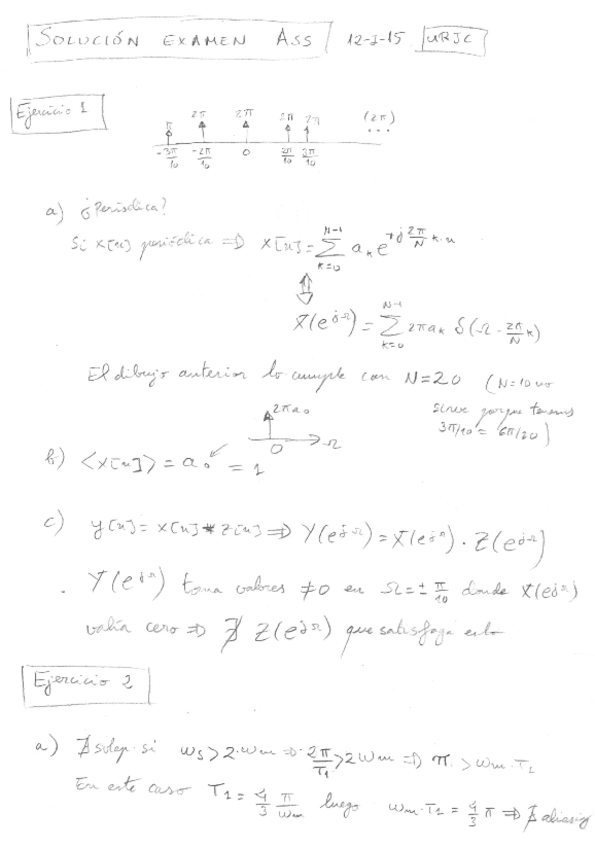 SOLUCIÓN EXAMEN ASS 12-1-15 URJC
Ejercicio 1
π 2π 2π 2π 2π (2π)
-3π/10 -2π/10 0 2π/10 3π/10 ...
a) ¿Periódica?
Si x[n] periódica ⇒ x[n] = Σ_{k=0}^{N-1} a_k e^{+j 2π/N k·n}
⇕
X(e^{jΩ}) = Σ_{k=0}^{N-1} 2π a_k δ(Ω - 2π/N k)
El dibujo anterior lo cumple con N=20 (N=10 no
sirve porque tenemos
3π/10 = 6π/20)
2πa₀
0 Ω
b) <x[n]> = a₀ = 1
c) y[n] = x[n] * z[n] ⇒ Y(e^{jΩ}) = X(e^{jΩ}) · Z(e^{jΩ})
. Y(e^{jΩ}) toma valores ≠0 en Ω = ± π/10 donde X(e^{jΩ})
valía cero ⇒ ∄ Z(e^{jΩ}) que satisfaga esto
Ejercicio 2
a) ∄ solap. si ω_s > 2·ω_m ⇒ 2π/T₁ > 2ω_m ⇒ π > ω_m·T₁
En este caso T₁ = 4/3 π/ω_m luego ω_m·T₁ = 4/3 π ⇒ ∄ aliasing